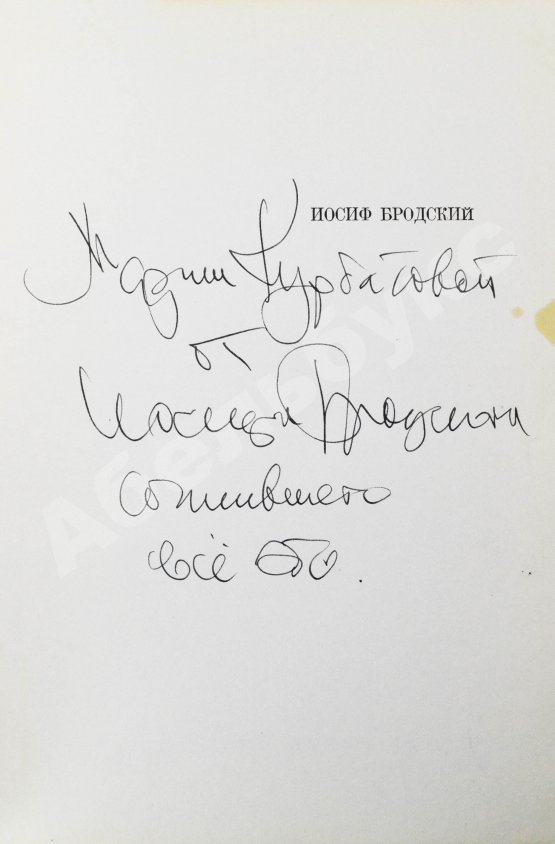 ИОСИФ БРОДСКИЙ
Марии Курбатовой
от
Иосифа Бродского
сочинившего
всё это.
Абельбукс